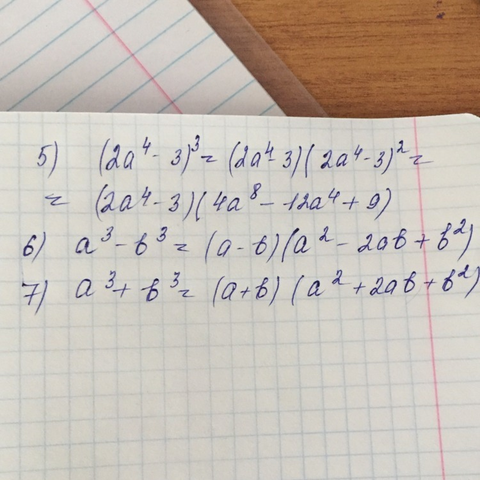 5) (2a⁴ - 3)³ = (2a⁴ - 3)(2a⁴ - 3)² =
= (2a⁴ - 3)(4a⁸ - 12a⁴ + 9)
6) a³ - b³ = (a - b)(a² - 2ab + b²)
7) a³ + b³ = (a + b)(a² + 2ab + b²)